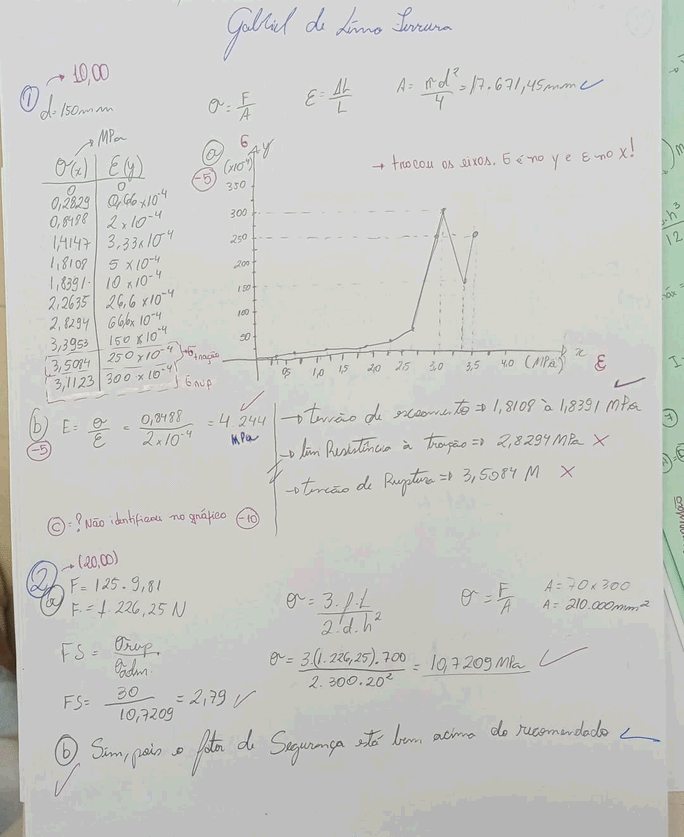 Gabriel de Lima Ferreira
→ 10,00
① d=150mm
σ = F/A ε = ΔL/L A = πd²/4 = 17.671,45mm ✓
→ MPa
σ(x) | ε(y)
0 | 0
0,2829 | 0,66 x10⁻⁴
0,8488 | 2 x10⁻⁴
1,4147 | 3,33x10⁻⁴
1,8108 | 5 x10⁻⁴
1,8391 | 10 x10⁻⁴
2,2635 | 26,6 x10⁻⁴
2,8294 | 66,6x10⁻⁴
3,3953 | 150 x10⁻⁴
3,5084 | 250 x10⁻⁴ → σ tração
3,1123 | 300 x10⁻⁴ → σ rup
ⓐ -5
σ y
(x10⁻⁴)
→ trocou os eixos. σ é no y e ε no x!
350
300
250
200
150
100
50
0,5 1,0 1,5 2,0 2,5 3,0 3,5 4,0 (MPa) x ε
ⓑ E = σ/ε = 0,8488/2x10⁻⁴ = 4.244 MPa ✓
-5
→ tensão de escoamento ⇒ 1,8108 à 1,8391 MPa ✓
→ Resistência à tração ⇒ 2,8294 MPa ×
→ tensão de Ruptura ⇒ 3,5084 M ×
ⓒ = ? Não identificou no gráfico -10
② → (20,00)
ⓐ F = 125 . 9,81
F = 1.226,25 N
σ = 3.f.L/2.d.h²
σ = F/A
A = 70x300
A = 210.000mm²
FS = σrup/σadm.
σ = 3.(1.226,25).700/2.300.20² = 10,7209 MPa ✓
FS = 30/10,7209 = 2,79 ✓
ⓑ Sim, pois o fator de Segurança está bem acima do recomendado ✓